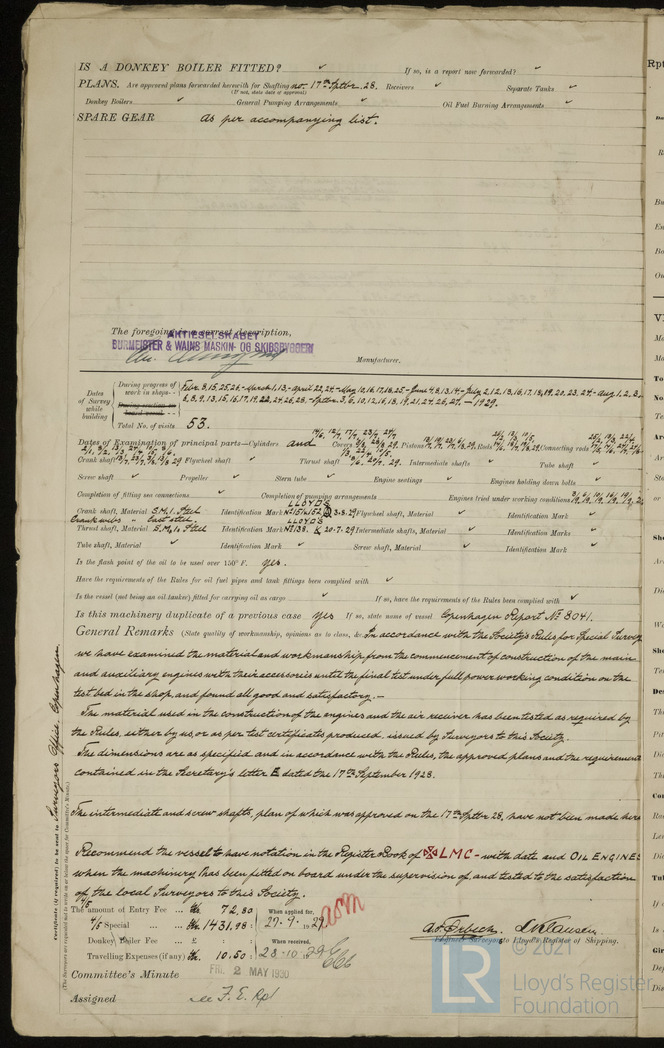 IS A DONKEY BOILER FITTED? ✓ If so, is a report now forwarded? ✓
PLANS. Are approved plans forwarded herewith for Shafting no. 17th Septbr 28. Receivers ✓ Separate Tanks ✓
(If not, state date of approval)
Donkey Boilers ✓ General Pumping Arrangements ✓ Oil Fuel Burning Arrangements ✓
SPARE GEAR as per accompanying list.
The foregoing is a correct description,
AKTIESELSKABET
BURMEISTER & WAINS MASKIN- OG SKIBSBYGGERI
Manufacturer.
Dates of Survey while building
During progress of work in shops - - Febr. 8, 15, 25, 26,- March 1, 13,- April 22, 24,- May 10, 16, 17, 18, 25,- June 4, 8, 13, 14,- July 2, 12, 13, 16, 17, 18, 19, 20, 23, 24,- Aug 1, 2, 3,
5, 8, 9, 13, 15, 16, 17, 19, 22, 24, 26, 28,- Septbr 3, 6, 10, 12, 16, 18, 19, 21, 24, 26, 27, — 1929.
Total No. of visits 53.
Dates of Examination of principal parts—Cylinders and Covers Pistons Rods Connecting rods
Crank shaft 29 Flywheel shaft ✓ Thrust shaft 29. Intermediate shafts ✓ Tube shaft ✓
Screw shaft ✓ Propeller ✓ Stern tube ✓ Engine seatings ✓ Engines holding down bolts ✓
Completion of fitting sea connections ✓ Completion of pumping arrangements ✓ Engines tried under working conditions
Crank shaft, Material S.M.I. Steel Identification Mark LLOYD'S 3-8-29 Flywheel shaft, Material ✓ Identification Mark ✓
Crank webs " Cast steel,
Thrust shaft, Material S.M.I. Steel Identification Mark LLOYD'S No 138. 20-7-29 Intermediate shafts, Material ✓ Identification Marks ✓
Tube shaft, Material ✓ Identification Mark ✓ Screw shaft, Material ✓ Identification Mark ✓
Is the flash point of the oil to be used over 150° F. yes.
Have the requirements of the Rules for oil fuel pipes and tank fittings been complied with ✓
Is the vessel (not being an oil tanker) fitted for carrying oil as cargo ✓ If so, have the requirements of the Rules been complied with ✓
Is this machinery duplicate of a previous case yes If so, state name of vessel Copenhagen Report No 8041.
General Remarks (State quality of workmanship, opinions as to class, &c. In accordance with the Society's Rules for Special Survey
we have examined the material and workmanship from the commencement of construction of the main
and auxiliary engines with their accessories until the final test under full power working condition on the
test bed in the shop, and found all good and satisfactory.—
The material used in the construction of the engines and the air receiver has been tested as required by
the Rules, either by us, or as per test certificates produced, issued by Surveyors to this Society.
The dimensions are as specified and in accordance with the Rules, the approved plans and the requirement
contained in the Secretary's letter E dated the 17th September 1928.
The intermediate and screw shafts, plan of which was approved on the 17th Septbr 28, have not been made here
Recommend the vessel to have notation in the Register Book of LMC - with date and OIL ENGINES
when the machinery has been fitted on board under the supervision of and tested to the satisfaction
of the local Surveyors to this Society.
The amount of Entry Fee ... Kr. 72,80 When applied for,
4/5 Special ... Kr. 1431,98 : 27-9-1929
Donkey Boiler Fee ... £ : When received,
Travelling Expenses (if any) Kr. 10.50 : 28-10-1929
Surveyors to Lloyd's Register of Shipping.
Committee's Minute FRI. 2 MAY 1930
Assigned see F.E. Rpt
Certificate (if required) to be sent to Surveyors Office, Copenhagen.
(The Surveyors are requested not to write on or below the space for Committee's Minute.)
© 2021
LR
Lloyd's Register
Foundation